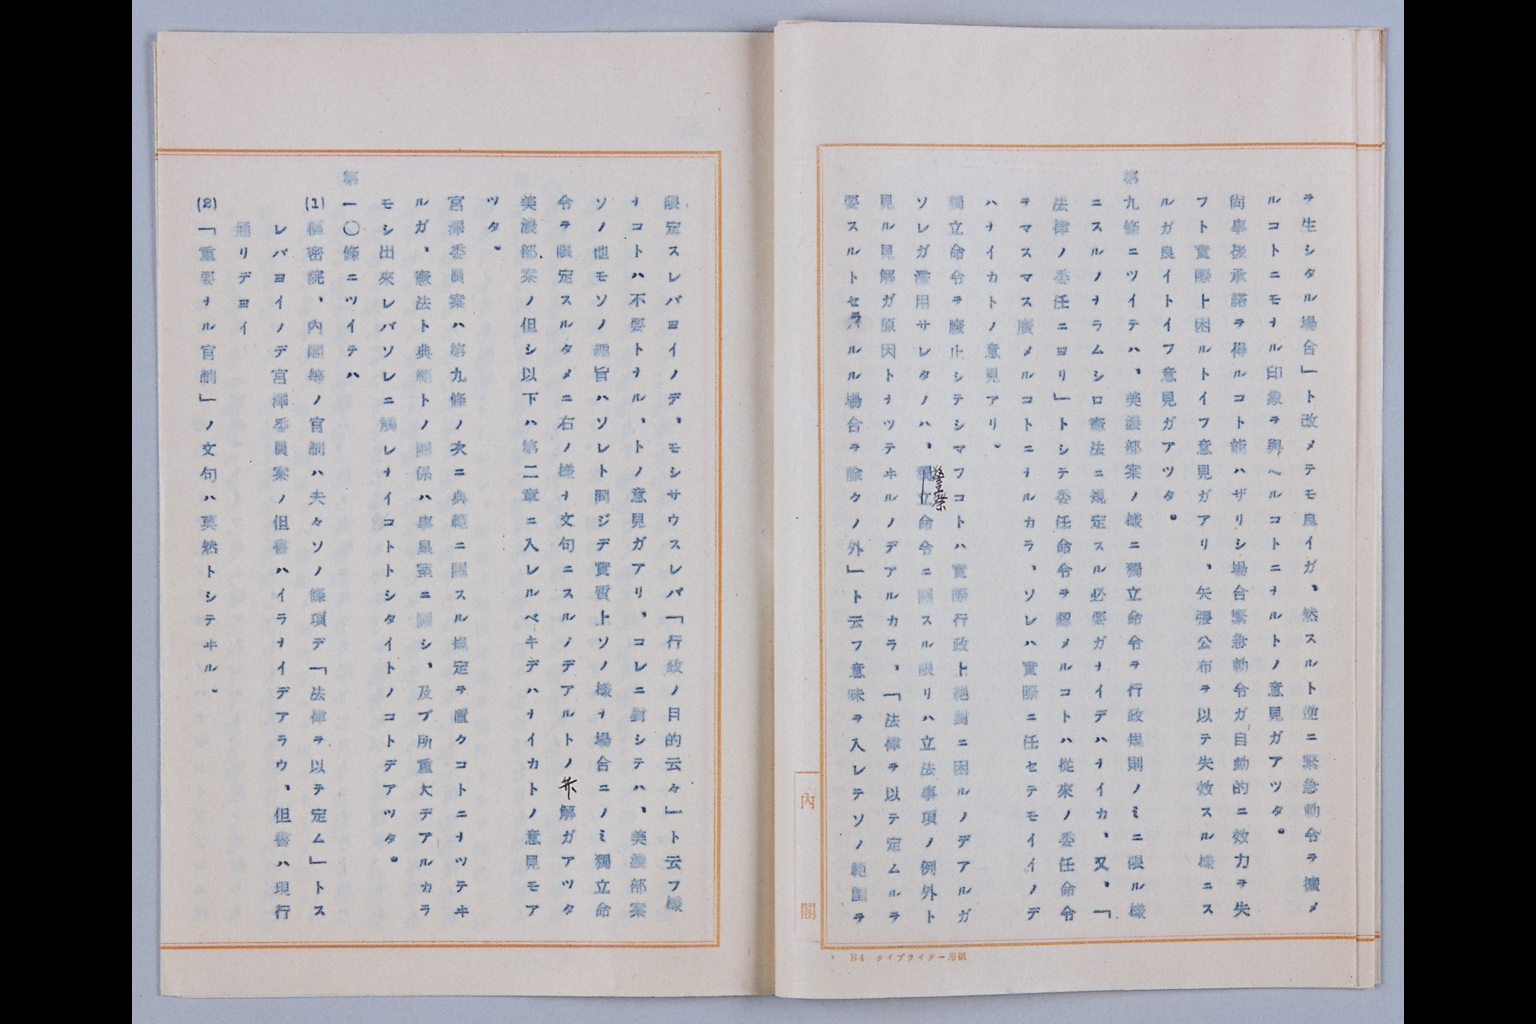 ヲ生シタル場合」ト改メテモ良イガ、然スルト逆ニ緊急勅令ヲ擴メ
ルコトニモナル印象ヲ與ヘルコトニナルトノ意見ガアツタ。
尚事後承諾ヲ得ルコト能ハザリシ場合緊急勅令ガ自動的ニ效力ヲ失
フト實際ト困ルトイフ意見ガアリ、矢張公布ヲ以テ失效スル様ニス
ルガ良イトイフ意見ガアツタ。
第九條ニツイテハ、美濃部案ノ様ニ獨立命令ヲ行政規則ノミニ限ル様
ニスルノナラムシロ憲法ニ規定スル必要ガナイデハナイカ、又、「
法律ノ委任ニヨリ」トシテ委任命令ヲ認メルコトハ從來ノ委任命令
ヲマスマス廣メルコトニナルカラ、ソレハ實際ニ任セテモイイノデ
ハナイカトノ意見アリ。
獨立命令ヲ廢止シテシマフコトハ實際行政上絕對ニ困ルノデアルガ
ソレガ濫用サレタノハ、警察命令ニ關スル限リハ立法事項ノ例外ト
見ル見解ガ原因トナツテヰルノデアルカラ、「法律ヲ以テ定ムルヲ
要スルトセラルル場合ヲ除クノ外」ト云フ意味ヲ入レテソノ範圍ヲ
內閣
B4 タイプライター用紙
限定スレバヨイノデ、モシサウスレバ「行政ノ目的云々」ト云フ様
ナコトハ不要トナル、トノ意見ガアリ、コレニ對シテハ、美濃部案
ソノ他モソノ趣旨ハソレト同ジデ實質上ソノ様ナ場合ニノミ獨立命
令ヲ限定スルタメニ右ノ様ナ文句ニスルノデアルトノ弁解ガアツタ
美濃部案ノ但シ以下ハ第二章ニ入レルベキデハナイカトノ意見モア
ツタ。
宮澤委員案ハ第九條ノ次ニ典範ニ關スル規定ヲ置クコトニナツテヰ
ルガ、憲法ト典範トノ關係ハ事皇室ニ關シ、及ブ所重大デアルカラ
モシ出來レバソレニ觸レナイコトトシタイトノコトデアツタ。
第一〇條ニツイテハ
(1)樞密院、內閣等ノ官制ハ夫々ソノ條項デ「法律ヲ以テ定ム」トス
レバヨイノデ宮澤委員案ノ但書ハイラナイデアラウ、但書ハ現行
通リデヨイ
(2)「重要ナル官制」ノ文句ハ莫然トシテヰル。